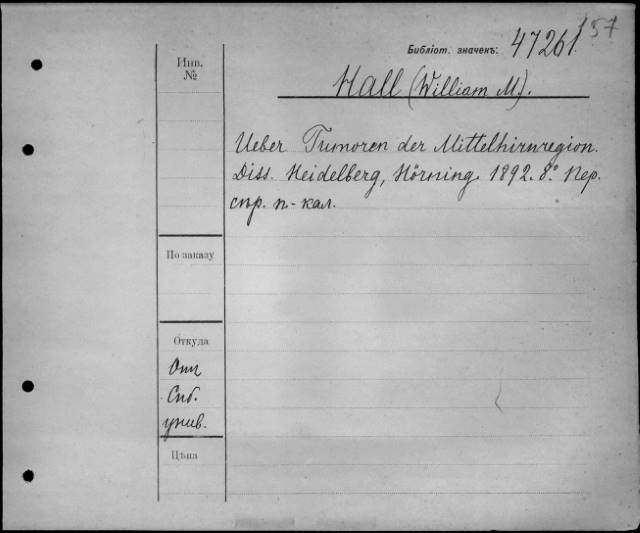 157
Библіот. значекъ: 47261.
Инв.
№
Hall (William M.).
Ueber Tumoren der Mittelhirnregion.
Diss. Heidelberg, Hörning. 1892. 8.° Пер.
спр. п-кал.
По заказу
Откуда
Отъ
Спб.
унив.
Цѣна